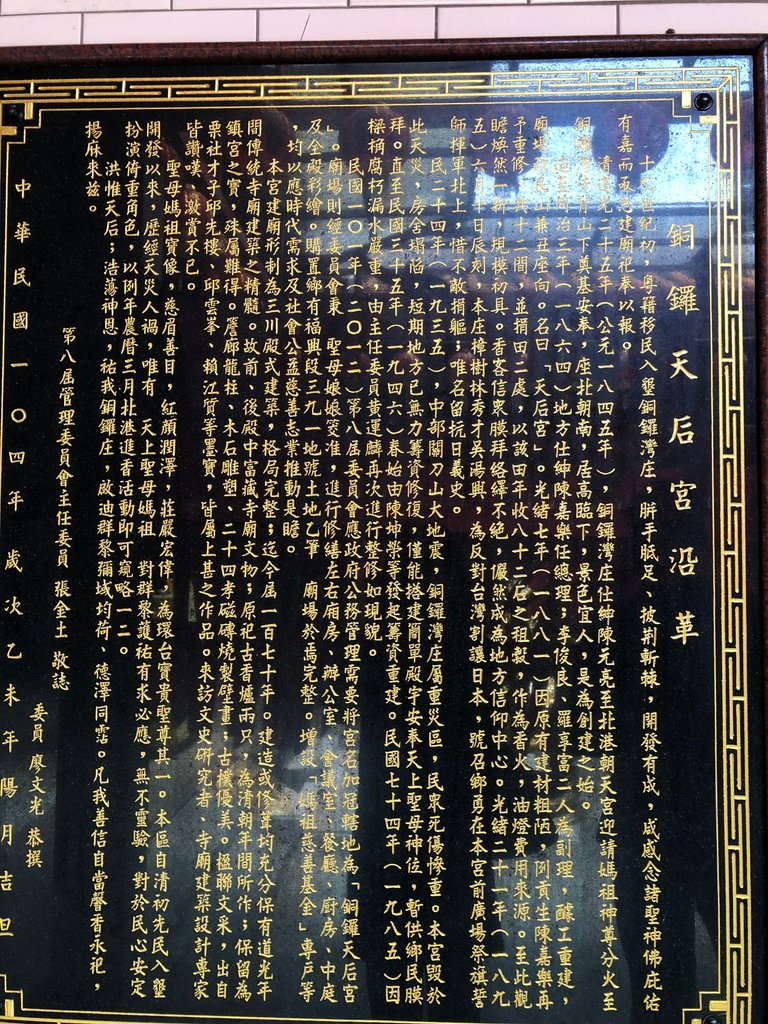 銅鑼天后宮沿革
十九世紀初，粵籍移民入墾銅鑼灣庄，胼手胝足、披荆斬棘，開發有成，咸感念諸聖神佛庇佑
有嘉而亟思建廟祀奉以報。
清道光二十五年（公元一八四五年），銅鑼灣庄仕紳陳元亮至北港朝天宮迎請媽祖神尊分火至
銅鑼灣牛背山下奠基安奉，座北朝南，居高臨下，景色宜人，是為創建之始。
迨至同治三年（一八六四）地方仕紳陳嘉樂任總理；李俊良、羅享富二人為副理，醵工重建，
廟場艮山兼丑座向。名曰「天后宮」。光緒七年（一八八一）因原有建材粗陋，例貢生陳嘉樂再
予重修，共十二間，並捐田二處，以該田年收八十二石之租穀，作為香火，油燈費用來源。至此觀
瞻煥然一新，規模初具。香客信眾膜拜絡繹不絕，儼然成為地方信仰中心。光緒二十一年（一八九
五）六月十日辰刻，本庄樟樹林秀才吳湯興，為反對台灣割讓日本，號召鄉勇在本宮前廣場祭旗誓
師揮軍北上，惜不敵捐軀；唯名留抗日義史。
民二十四年（一九三五），中部關刀山大地震，銅鑼灣庄屬重災區，民眾死傷慘重。本宮毀於
此天災，房舍塌陷，短期地方已無力籌資修復，僅能搭建簡單殿宇安奉天上聖母神位，暫供鄉民膜
拜。直至民國三十五年（一九四六）春始由陳坤榮等發起籌資重建。民國七十四年（一九八五）因
樑桷腐朽漏水嚴重，由主任委員黃運麟再次進行整修如現貌。
民國一０一年（二０一二）第八屆委員會應政府公務管理需要將宮名加冠轄地為「銅鑼天后宮
」。廟場則經委員會秉　聖母娘娘筊准，進行修繕左右廂房、辦公室、會議室、餐廳、厨房、中庭
及全殿彩繪。購置鄉有福興段三九一地號土地乙筆　廟場於焉完整。增設「媽祖慈善基金」專戶等
，均以應時代需求及社會公益慈善志業推動是瞻。
本宮建廟形制為三川殿式建築，格局完整；迄今屆一百七十年。建造或修葺均充分保有道光年
間傳統寺廟建築之精髓。故前、後殿中富藏寺廟文物；原祀古香爐兩只，為清朝年間所作；保留為
鎮宮之寶，殊屬難得。簷廊龍柱、木石雕塑、二十四孝磁磚燒製壁畫；古樸優美。楹聯文采，出自
栗社才子邱先樓、邱雲峯、賴江質等墨寶，皆屬上甚之作品。來訪文史研究者、寺廟建築設計專家
皆讚嘆、激賞不已。
聖母媽祖寶像，慈眉善目，紅顏潤澤，莊嚴宏偉，為環台寶貴聖尊其一。本區自清初先民入墾
開發以來，歷經天災人禍，唯有　天上聖母媽祖　對群黎護祐有求必應，無不靈驗，對於民心安定
扮演倚重角色，以例年農曆三月北港進香活動即可窺略一二。
洪惟天后；浩蕩神恩，祐我銅鑼庄，啟迪群黎彌域均荷、德澤同霑。凡我善信自當馨香永祀，
揚麻來茲。
第八屆管理委員會主任委員　張金土　敬誌
委員　廖文光　恭撰
中華民國一０四年歲次乙未年陽月吉旦